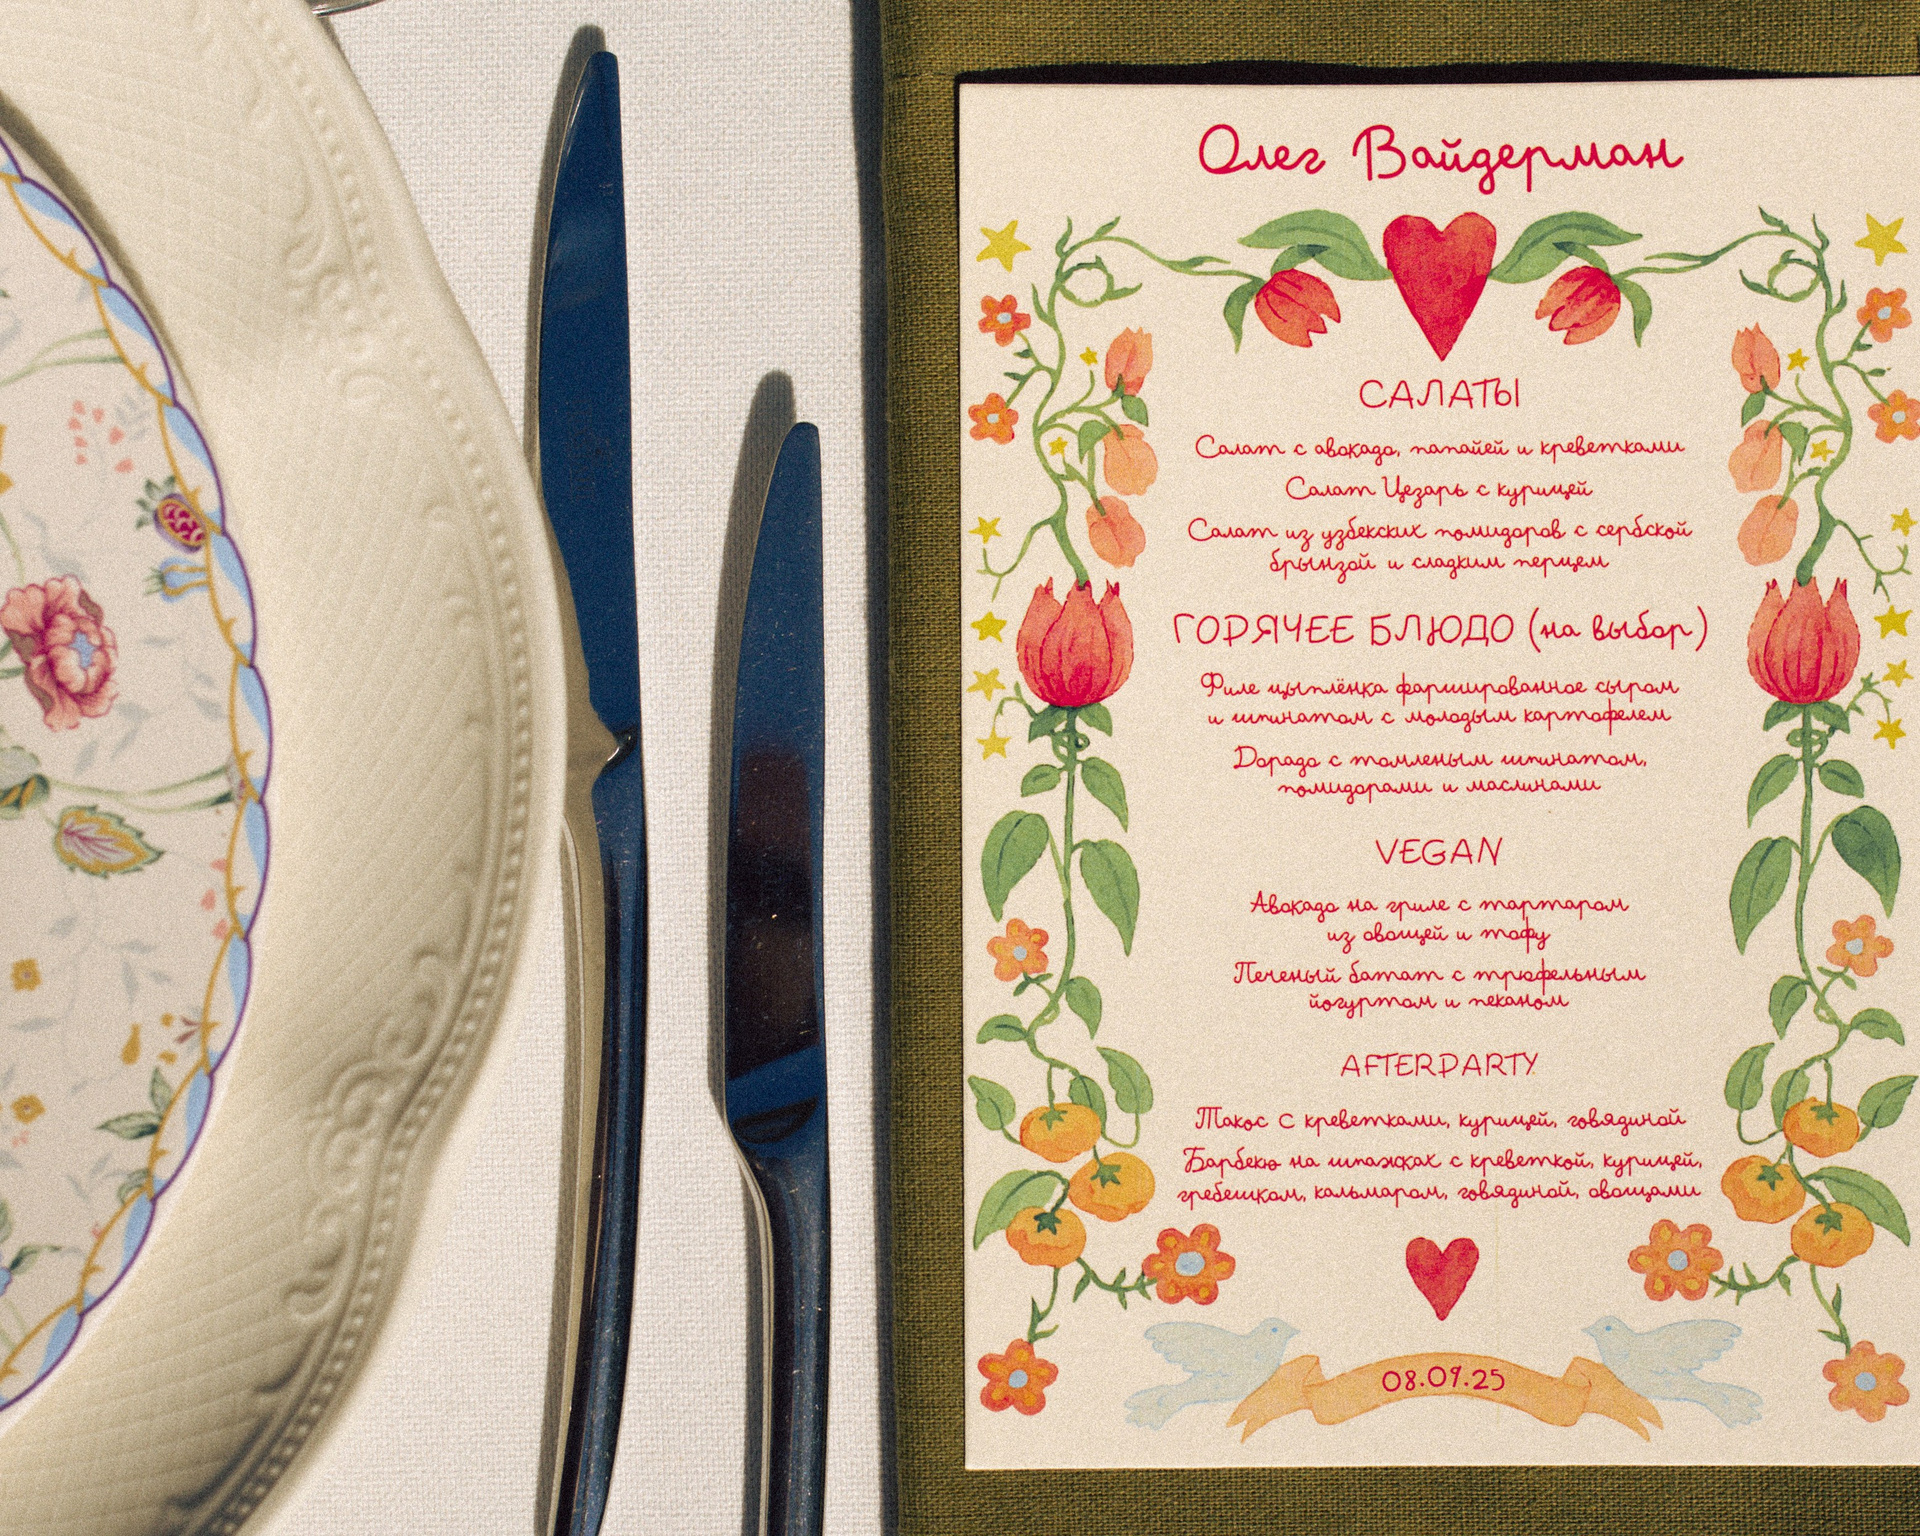 Олег Вайдерман
САЛАТЫ
Салат с авокадо, папайей и креветками
Салат Цезарь с курицей
Салат из узбекских помидоров с сербской
брынзой и сладким перцем
ГОРЯЧЕЕ БЛЮДО (на выбор)
Филе цыплёнка фаршированное сыром
и шпинатом с молодым картофелем
Дорадо с томленым шпинатом,
помидорами и маслинами
VEGAN
Авокадо на гриле с тартаром
из овощей и тофу
Печеный батат с трюфельным
йогуртом и пеканом
AFTERPARTY
Такос с креветками, курицей, говядиной
Барбекю на шпажках с креветкой, курицей,
гребешком, кальмаром, говядиной, овощами
08.09.25